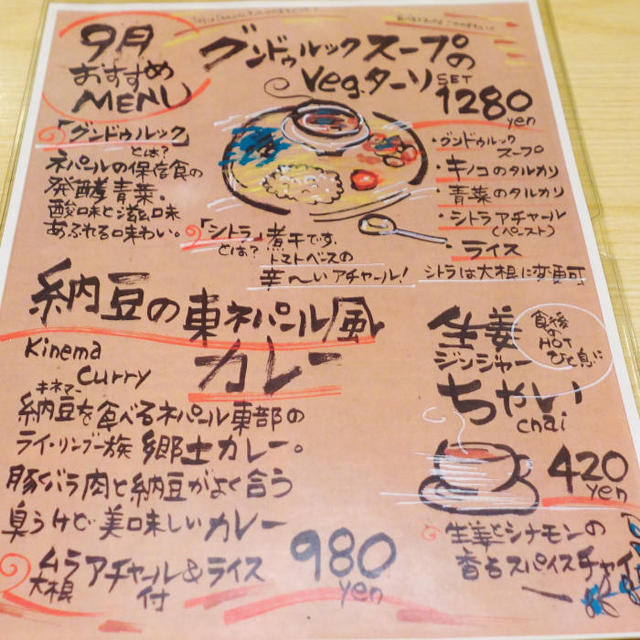 9月
おすすめ
MENU
グンドゥルックスープの
Veg.ターリSET
1280
yen
「グンドゥルック」
とは?
ネパールの保存食の
発酵青菜。
酸味と滋味
あふれる味わい。
「シトラ」煮干です.
とは? トマトベースの
辛〜いアチャール!
・グンドゥルック
スープ
・キノコのタルカリ
・青菜のタルカリ
・シトラアチャール
(ペースト)
・ライス
シトラは大根に変更可
納豆の東ネパール風
カレー
Kinema
Curry
キネマー
納豆を食べるネパール東部の
ライ・リンブー族 郷土カレー。
豚バラ肉と納豆がよく合う
臭うけど美味しいカレー
ムラアチャール&ライス
大根 付
980
yen
生姜
ジンジャー
ちゃい
chai
食後
の
HOT
ひと息に
420
yen
生姜とシナモンの
香るスパイスチャイ